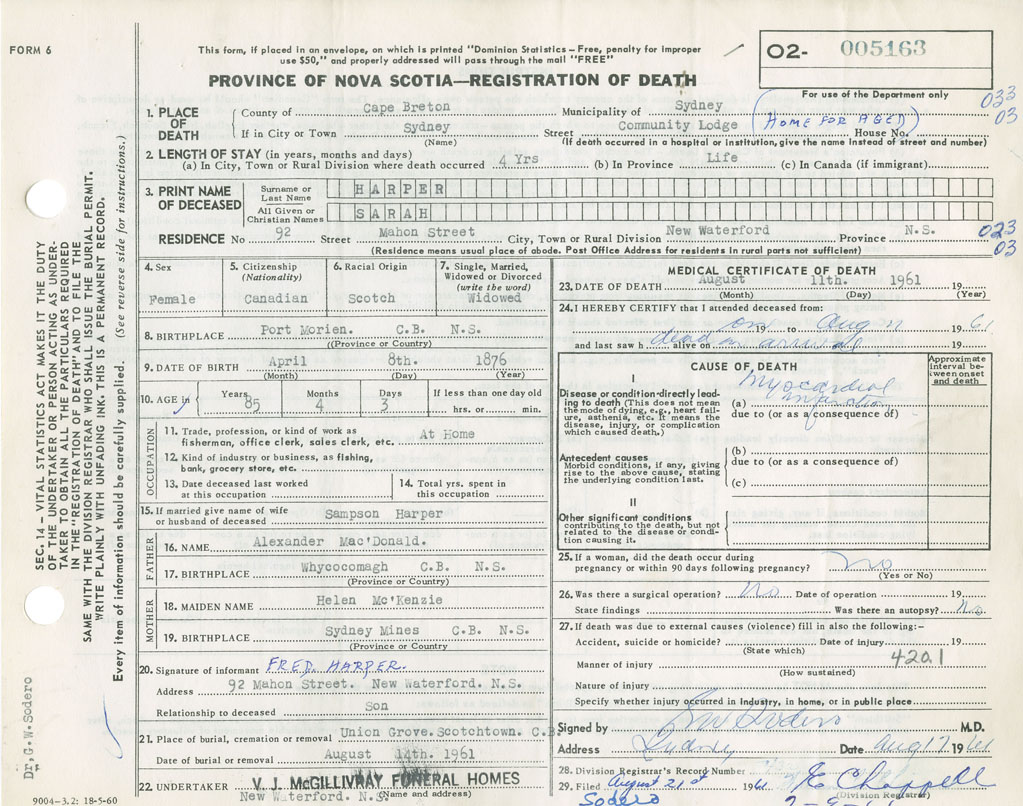 FORM 6
This form, if placed in an envelope, on which is printed "Dominion Statistics – Free, penalty for improper
use $50," and properly addressed will pass through the mail "FREE"
PROVINCE OF NOVA SCOTIA—REGISTRATION OF DEATH
O2- 005163
For use of the Department only
033
03
1. PLACE OF DEATH
County of Cape Breton Municipality of Sydney
If in City or Town Sydney Street Community Lodge (HOME FOR AGED) House No.
(Name) (If death occurred in a hospital or institution, give the name instead of street and number)
2. LENGTH OF STAY (in years, months and days)
(a) In City, Town or Rural Division where death occurred 4 Yrs (b) In Province Life (c) In Canada (if immigrant)
3. PRINT NAME OF DECEASED
Surname or Last Name HARPER
All Given or Christian Names SARAH
RESIDENCE No 92 Street Mahon Street City, Town or Rural Division New Waterford Province N.S.
(Residence means usual place of abode. Post Office Address for residents in rural parts not sufficient)
023
03
4. Sex
Female
5. Citizenship
(Nationality)
Canadian
6. Racial Origin
Scotch
7. Single, Married,
Widowed or Divorced
(write the word)
Widowed
8. BIRTHPLACE Port Morien. C.B. N.S.
((Province or Country)
9. DATE OF BIRTH April 8th. 1876
(Month) (Day) (Year)
10. AGE in
Years 85 Months 4 Days 3
If less than one day old
hrs. or min.
OCCUPATION
11. Trade, profession, or kind of work as
fisherman, office clerk, sales clerk, etc. At Home
12. Kind of industry or business, as fishing,
bank, grocery store, etc.
13. Date deceased last worked
at this occupation
14. Total yrs. spent in
this occupation
15. If married give name of wife
or husband of deceased Sampson Harper
FATHER
16. NAME Alexander Mac'Donald.
17. BIRTHPLACE Whycocomagh C.B. N.S.
(Province or Country)
MOTHER
18. MAIDEN NAME Helen Mc'Kenzie
19. BIRTHPLACE Sydney Mines C.B. N.S.
(Province or Country
20. Signature of informant FRED. HARPER.
Address 92 Mahon Street. New Waterford. N.S.
Relationship to deceased Son
21. Place of burial, cremation or removal Union Grove. Scotchtown. C.B
Date of burial or removal August 14th. 1961
22. UNDERTAKER V. J. McGILLIVRAY FUNERAL HOMES
New Waterford. N.S. (Name and address)
9004-3.2: 18-5-60
MEDICAL CERTIFICATE OF DEATH
23. DATE OF DEATH August 11th. 1961 19
(Month) (Day) (Year)
24. I HEREBY CERTIFY that I attended deceased from:
on 19 to Aug 11 1961
and last saw h alive on dead on arrival 19
CAUSE OF DEATH
Approximate
interval be-
tween onset
and death
I
Disease or condition directly lead-
ing to death (This does not mean
the mode of dying, e.g., heart fail-
ure, asthenia, etc. It means the
disease, injury, or complication
which caused death.)
(a) Myocardial
Infarction
due to (or as a consequence of)
Antecedent causes
Morbid conditions, if any, giving
rise to the above cause, stating
the underlying condition last.
(b)
due to (or as a consequence of)
(c)
II
Other significant conditions
contributing to the death, but not
related to the disease or condi-
tion causing it.
25. If a woman, did the death occur during
pregnancy or within 90 days following pregnancy? No
(Yes or No)
26. Was there a surgical operation? No Date of operation 19
State findings Was there an autopsy? No.
27. If death was due to external causes (violence) fill in also the following:–
Accident, suicide or homicide? Date of injury 19
(State which)
420.1
Manner of injury
(How sustained)
Nature of injury
Specify whether injury occurred in industry, in home, or in public place
Signed by GW Sodero M.D.
Address Sydney Date Aug 17 1961
28. Division Registrar's Record Number
29. Filed August 21st 1961 E Chappell
(Division Registrar)
Sodero
SEC. 14 – VITAL STATISTICS ACT MAKES IT THE DUTY
OF THE UNDERTAKER OR PERSON ACTING AS UNDER-
TAKER TO OBTAIN ALL THE PARTICULARS REQUIRED
IN THE "REGISTRATION OF DEATH" AND TO FILE THE
SAME WITH THE DIVISION REGISTRAR WHO SHALL ISSUE THE BURIAL PERMIT.
WRITE PLAINLY WITH UNFADING INK. THIS IS A PERMANENT RECORD.
Every item of information should be carefully supplied. (See reverse side for instructions.)
Dr, G. W. Sodero